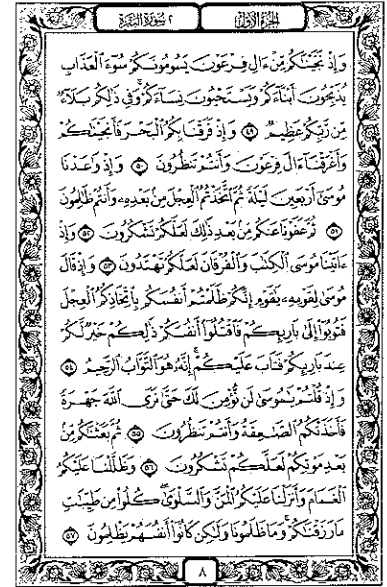 الجزء الأول
٢ سورة البقرة
وَإِذْ نَجَّيْنَٰكُم مِّنْ ءَالِ فِرْعَوْنَ يَسُومُونَكُمْ سُوٓءَ ٱلْعَذَابِ
يُذَبِّحُونَ أَبْنَآءَكُمْ وَيَسْتَحْيُونَ نِسَآءَكُمْ وَفِى ذَٰلِكُم بَلَآءٌ
مِّن رَّبِّكُمْ عَظِيمٌ ٤٩ وَإِذْ فَرَقْنَا بِكُمُ ٱلْبَحْرَ فَأَنجَيْنَٰكُمْ
وَأَغْرَقْنَآ ءَالَ فِرْعَوْنَ وَأَنتُمْ تَنظُرُونَ ٥٠ وَإِذْ وَٰعَدْنَا
مُوسَىٰٓ أَرْبَعِينَ لَيْلَةً ثُمَّ ٱتَّخَذْتُمُ ٱلْعِجْلَ مِنۢ بَعْدِهِۦ وَأَنتُمْ ظَٰلِمُونَ
٥١ ثُمَّ عَفَوْنَا عَنكُم مِّنۢ بَعْدِ ذَٰلِكَ لَعَلَّكُمْ تَشْكُرُونَ ٥٢ وَإِذْ
ءَاتَيْنَا مُوسَى ٱلْكِتَٰبَ وَٱلْفُرْقَانَ لَعَلَّكُمْ تَهْتَدُونَ ٥٣ وَإِذْ قَالَ
مُوسَىٰ لِقَوْمِهِۦ يَٰقَوْمِ إِنَّكُمْ ظَلَمْتُمْ أَنفُسَكُم بِٱتِّخَاذِكُمُ ٱلْعِجْلَ
فَتُوبُوٓا۟ إِلَىٰ بَارِئِكُمْ فَٱقْتُلُوٓا۟ أَنفُسَكُمْ ذَٰلِكُمْ خَيْرٌ لَّكُمْ
عِندَ بَارِئِكُمْ فَتَابَ عَلَيْكُمْ إِنَّهُۥ هُوَ ٱلتَّوَّابُ ٱلرَّحِيمُ ٥٤
وَإِذْ قُلْتُمْ يَٰمُوسَىٰ لَن نُّؤْمِنَ لَكَ حَتَّىٰ نَرَى ٱللَّهَ جَهْرَةً
فَأَخَذَتْكُمُ ٱلصَّٰعِقَةُ وَأَنتُمْ تَنظُرُونَ ٥٥ ثُمَّ بَعَثْنَٰكُم مِّنۢ
بَعْدِ مَوْتِكُمْ لَعَلَّكُمْ تَشْكُرُونَ ٥٦ وَظَلَّلْنَا عَلَيْكُمُ
ٱلْغَمَامَ وَأَنزَلْنَا عَلَيْكُمُ ٱلْمَنَّ وَٱلسَّلْوَىٰ كُلُوا۟ مِن طَيِّبَٰتِ
مَا رَزَقْنَٰكُمْ وَمَا ظَلَمُونَا وَلَٰكِن كَانُوٓا۟ أَنفُسَهُمْ يَظْلِمُونَ ٥٧
٨